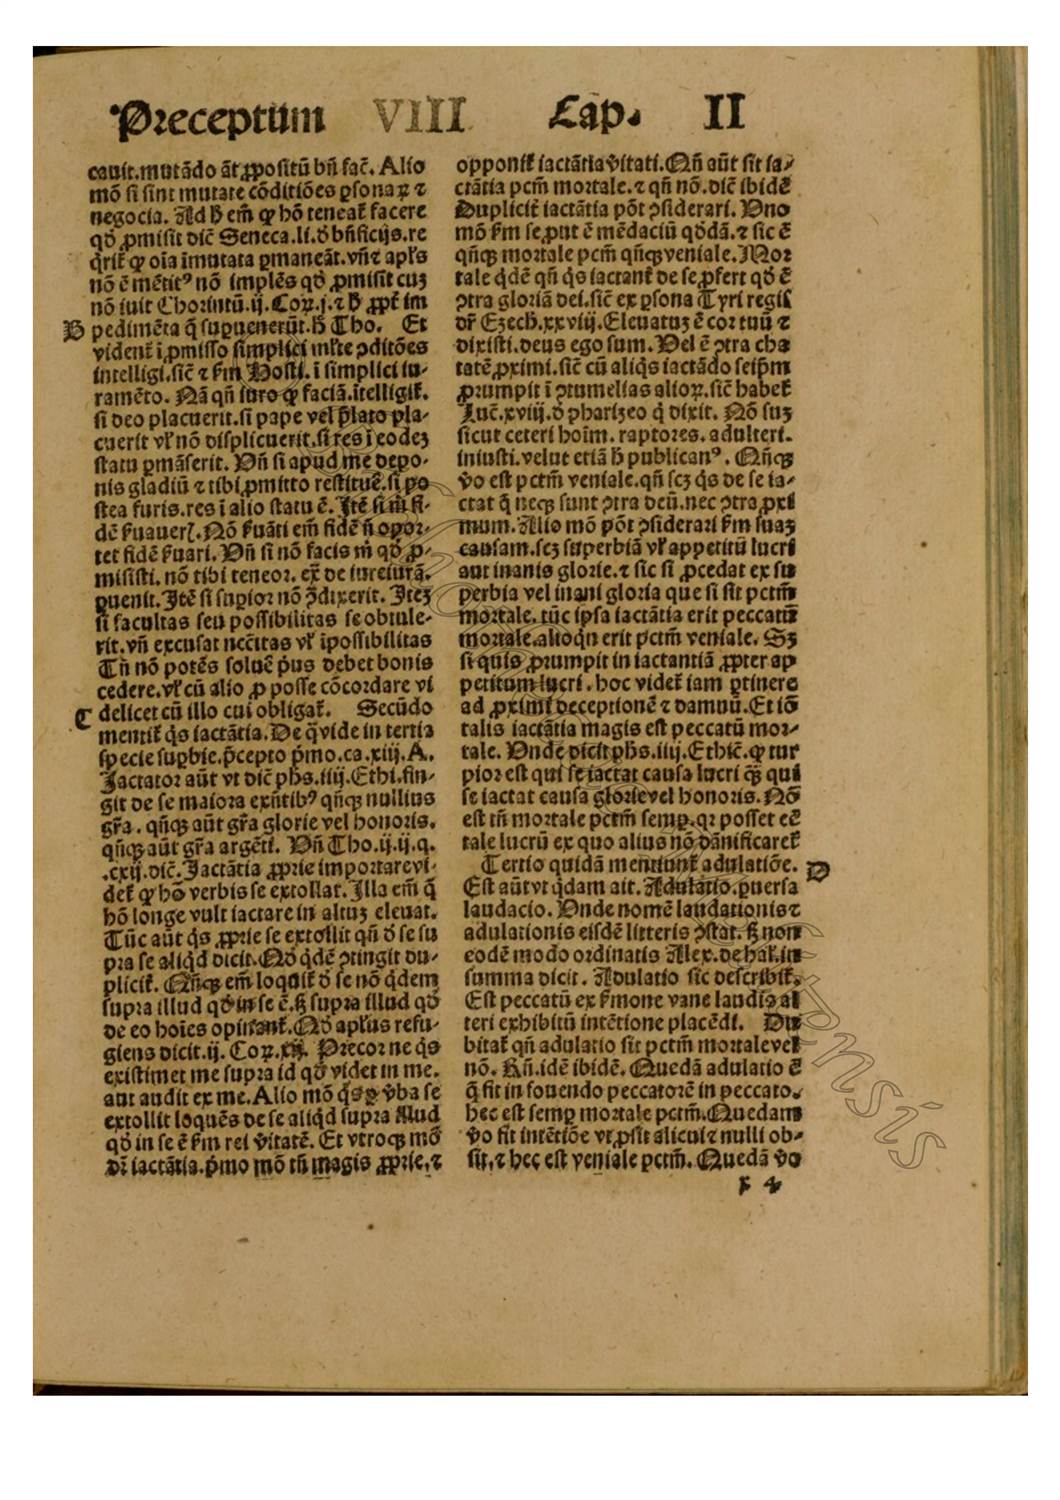 Preceptum VIII Cap. II
cauit.mutãdo ãt ꝓpositũ bñ fac̃. Alio
mõ si sint mutate cõditiões ꝑsonaꝝ ⁊
negocia. Ad h̄ em̃ ꝙ hõ teneat᷑ facere
qd̓ ꝓmisit dic̃ Seneca.li.d̓ bñficijs.re
q̇rit᷑ ꝙ oĩa ĩmutata ꝑmaneãt.vñ ⁊ apl̃s
nõ ẽ mẽtitꝰ nõ implẽs qd̓ ꝓmisit cuʒ
nõ iuit Chorintũ.ij. Coꝝ.j.⁊ h̄ ꝓpt̃ im
B pedimẽta q̃ suꝑuenerũt.h̄ Tho. Et
vident᷑ ĩ ꝓmisso simplici iuste ↄditões
intelligi.sic̃ ⁊ ẜm Hosti.ĩ simplici iu-
ramẽto. Nã qñ iuro ꝙ faciã.ĩtelligit᷑.
si deo placuerit.si pape vel p̃lato pla-
cuerit vl̓ nõ displicuerit.si res ĩ eodeʒ
statu ꝑmãserit. Vñ si apud me depo-
nis gladiũ ⁊ tibi ꝓmitto restituẽ.si po
stea furis.res ĩ alio statu ẽ. Itẽ si m̃ fi-
dẽ ẜuauerꝭ. Nõ ẜuãti em̃ fidẽ ñ opor-
tet fidẽ ẜuari. Vñ si nõ facis m̃ qd̓ ꝓ-
misisti.nõ tibi teneor. ex̃ de iureiurã.
ꝑuenit. Itẽ si suꝑior nõ ↄ̃dixerit. Iteʒ
si facultas seu possibilitas se obtule-
rit.vñ excusat nec̃itas vl̓ ĩpossibilitas
Tñ nõ potẽs soluẽ p̃us debet bonis
cedere.vl̓ cũ alio ꝓ posse cõcordare vi
C delicet cũ illo cui obligat᷑. Secũdo
mentit᷑ q̇s iactãtia. De q̃ vide in tertia
specie suꝑbie.p̃cepto p̃mo.ca.xiij.A.
Iactator aũt vt dic̃ ph̃s.iiij.Ethi.fin-
git de se maiora exñtibꝰ qñqꝫ nullius
gr̃a. qñqꝫ aũt gr̃a glorie vel honoris.
qñqꝫ aũt gr̃a argẽti. Vñ Tho.ij.ij.q.
.cxij.dic̃. Iactãtia ꝓprie importare vi-
det᷑ ꝙ hõ verbis se extollat. Illa em̃ q̃
hõ longe vult iactare in altuʒ eleuat.
Tũc aũt q̇s ꝓprie se extollit qñ d̓ se su
pra se aliq̇d dicit. Qd̓ q̇dẽ ↄtingit du-
plicit̃. Qñqꝫ em̃ loquit᷑ d̓ se nõ q̇dem
supra illud qd̓ in se ẽ.ſꝫ supra illud qd̓
de eo hoĩes opinant᷑. Qd̓ apl̃us refu-
giens dicit.ij. Coꝝ.xij. Precor ne q̇s
existimet me supra id qd̓ videt in me.
aut audit ex me. Alio mõ q̇s ꝑ v̓ba se
extollit loquẽs de se aliq̇d supra illud
qd̓ in se ẽ ẜm rei v̓itatẽ. Et vtroqꝫ mõ
dr̃ iactãtia.p̃mo mõ tñ magis ꝓprie.⁊
opponit᷑ iactãtia v̓itati. Qñ aũt sit ia-
ctãtia pctm̃ mortale.⁊ qñ nõ.dic̃ ibidẽ
Duplicit̃ iactãtia põt ↄsiderari. Vno
mõ ẜm se ꝓut ẽ mẽdaciũ qd̓dã.⁊ sic ẽ
qñqꝫ mortale pctm̃ qñqꝫ veniale. Mor
tale q̇dẽ qñ q̇s iactant᷑ de se ꝓfert qd̓ ẽ
ↄtra gloriã dei.sic̃ ex ꝑsona Tyri regis
dr̃ Ezech.xxviij. Eleuatuʒ ẽ cor tuũ ⁊
dixisti.deus ego sum. Vel ẽ ↄtra cha
tatẽ ꝓximi.sic̃ cũ aliq̇s iactãdo seip̃m
ꝓrumpit ĩ ↄtumelias alioꝝ.sic̃ habet᷑
Luc̃.xviij.d̓ phariʒeo q̇ dixit. Nõ suʒ
sicut ceteri hoĩm. raptores. adulteri.
iniusti.velut etiã h̄ publicanꝰ. Qñqꝫ
v̓o est pctm̃ veniale.qñ scʒ q̇s de se ia-
ctat q̃ neqꝫ sunt ↄtra deũ.nec ↄtra ꝓxi
mum. Alio mõ põt ↄsiderari ẜm suaʒ
causam.scʒ suꝑbiã vl̓ appetitũ lucri
aut inanis glorie.⁊ sic si ꝓcedat ex su
perbia vel inani gloria que si sit pctm̃
mortale.tũc ipsa iactãtia erit peccatũ
mortale.alioqn erit pctm̃ veniale. Sʒ
si quis ꝓrumpit in iactantiã ꝓpter ap
petitum lucri. hoc videt᷑ iam ꝑtinere
ad ꝓximi deceptionẽ ⁊ damnũ. Et iõ
talis iactãtia magis est peccatũ mor-
tale. Vnde dicit ph̃s.iiij. Ethic̃.ꝙ tur
pior est qui se iactat causa lucri q̃ꝫ qui
se iactat causa glorie vel honoris. Nõ
est tñ mortale pctm̃ semꝑ.qꝛ posset eẽ
tale lucrũ ex quo alius nõ dãnificaret᷑
Tertio quidã mentiunt᷑ adulatiõe. D
Est aũt vt q̇dam ait. Adulatio.ꝑuersa
laudacio. Vnde nomẽ laudationis ⁊
adulationis eisdẽ litteris ↄstat.ſꝫ non
eodẽ modo ordinatis Alex.de hal̓.in
summa dicit. Adulatio sic describit᷑.
Est peccatũ ex ẜmone vane laudis al
teri exhibitũ intẽtione placẽdi. Du
bitat᷑ qñ adulatio sit pctm̃ mortale vel
nõ. Rñ.idẽ ibidẽ. Quedã adulatio ẽ
q̃ fit in fouendo peccatorẽ in peccato.
hec est semꝑ mortale pctm̃. Quedam
v̓o fit intẽtiõe vt ꝓsit alicui ⁊ nulli ob-
sit.⁊ hec est veniale pctm̃. Quedã v̓o
r 4